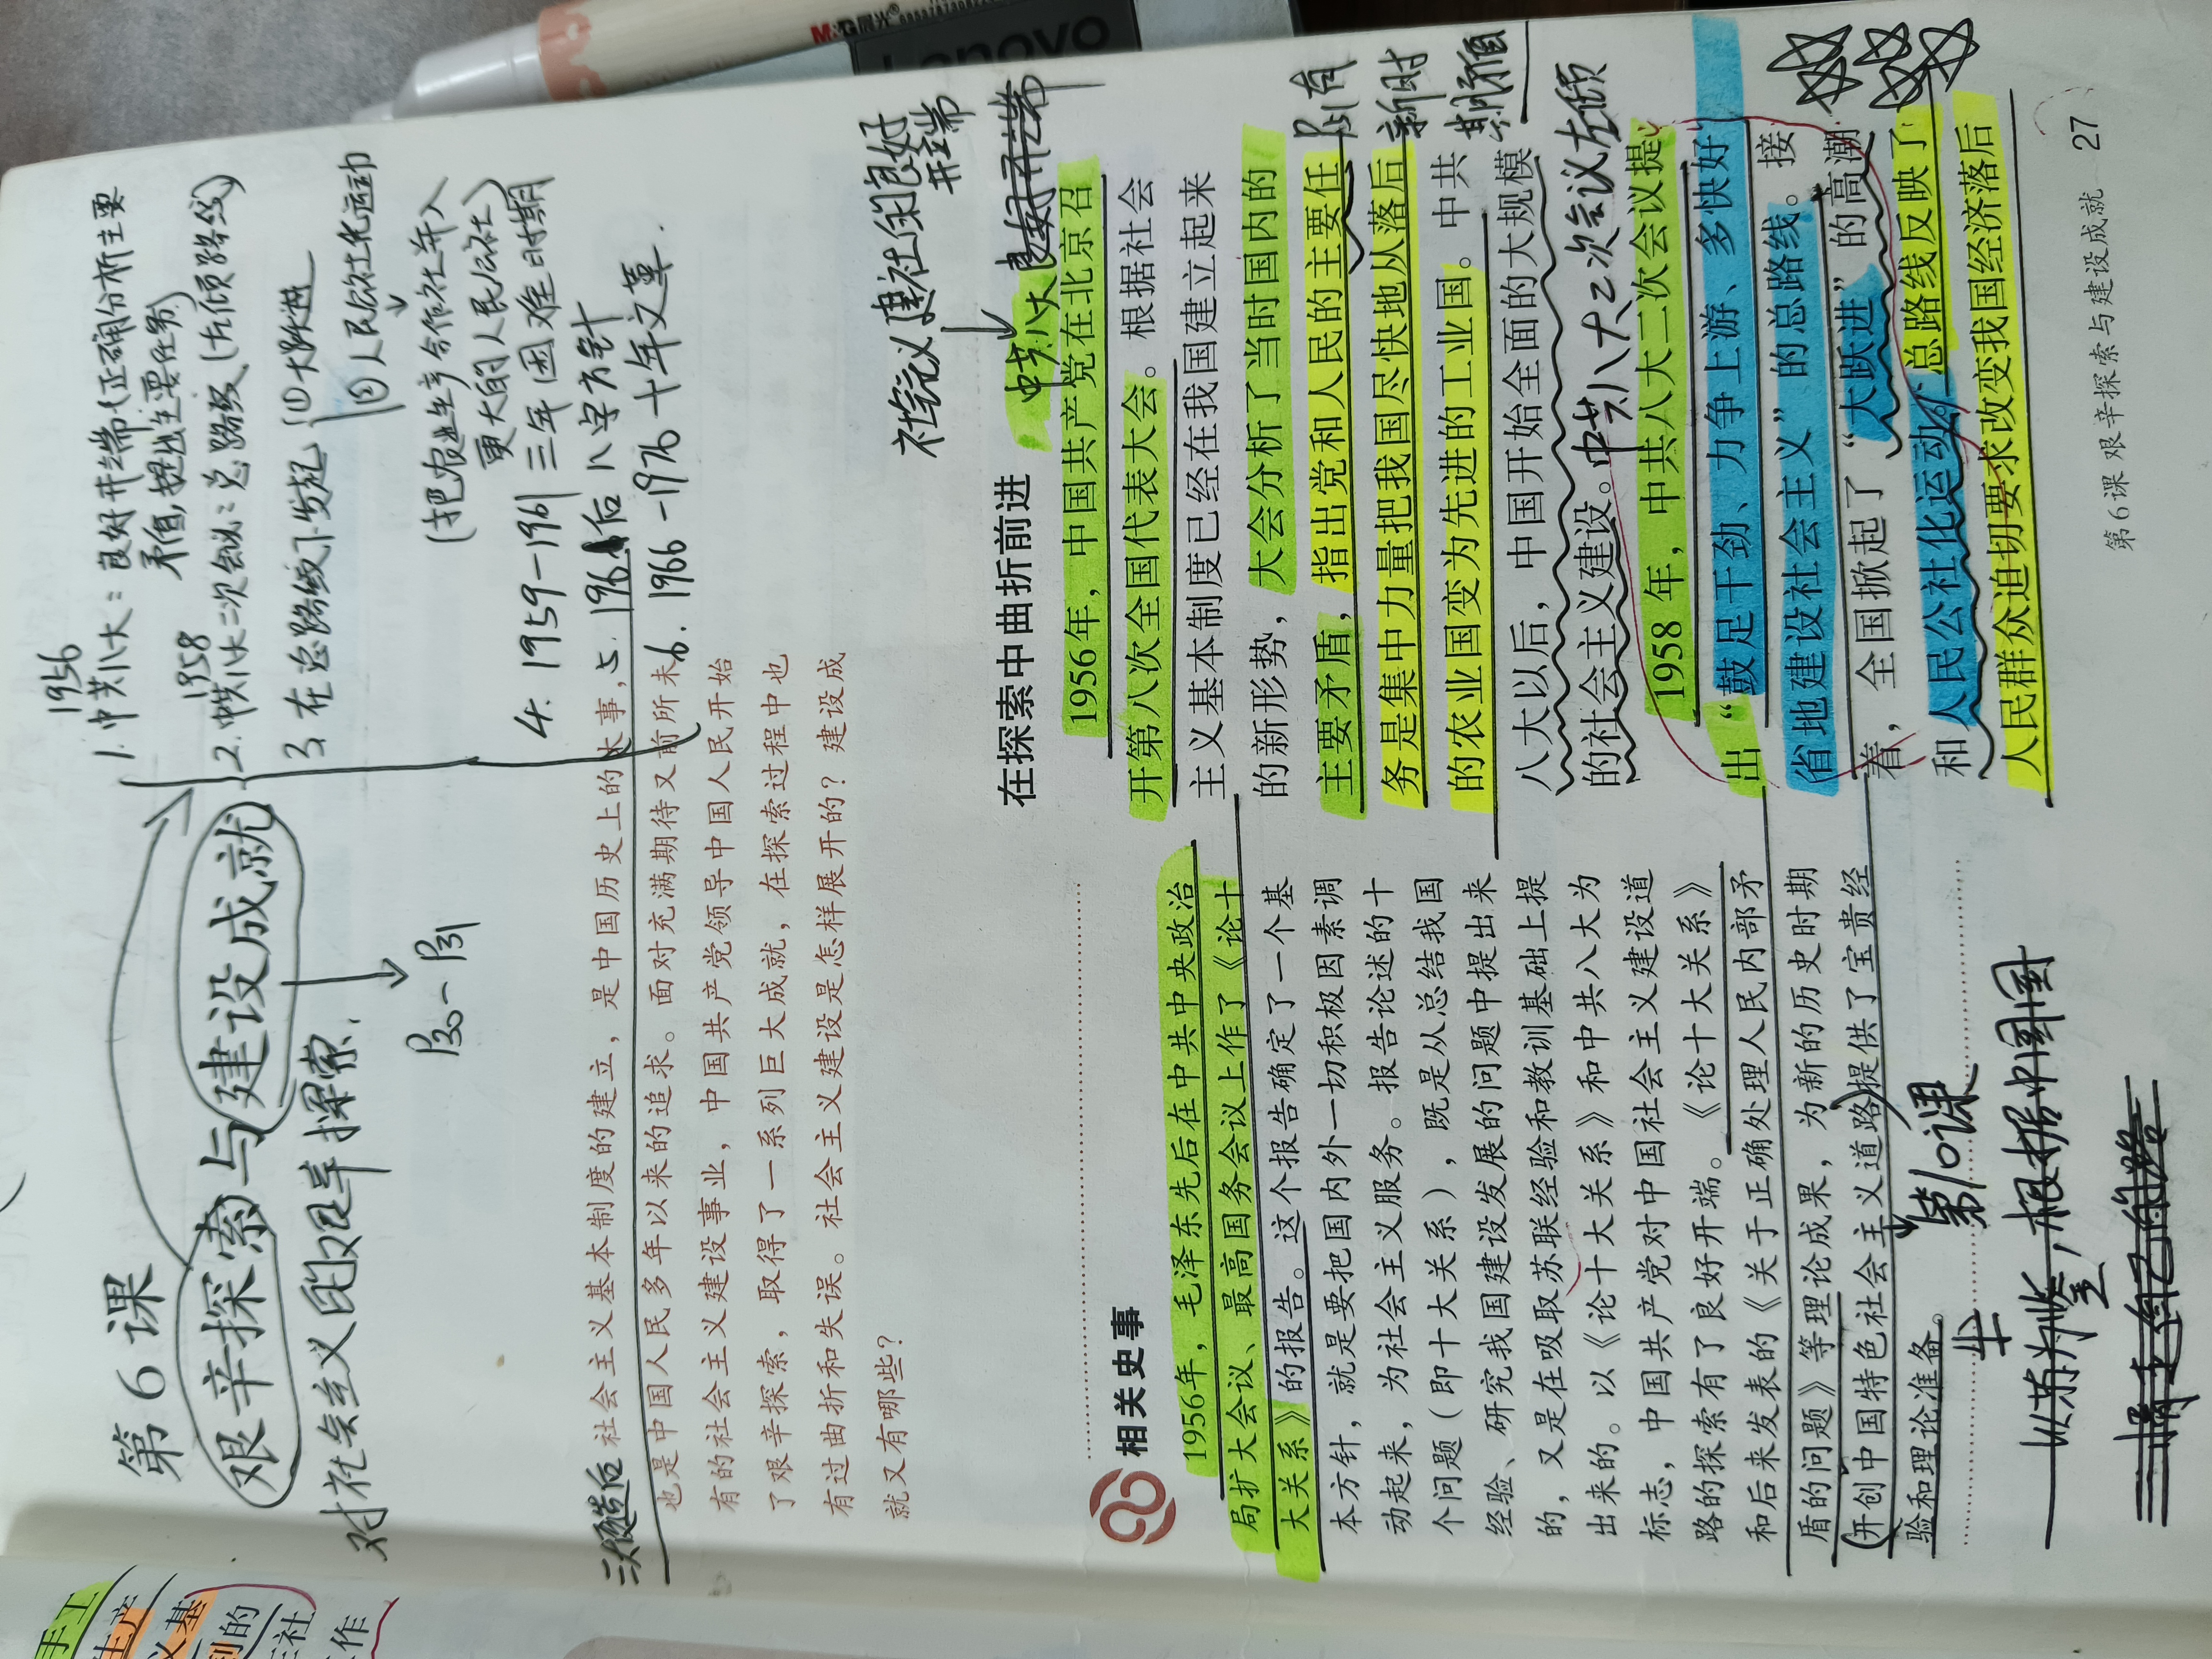 第6课
艰辛探索与建设成就
对社会主义的艰辛探索.
1956
1.中共八大：良好开端(正确分析主要
矛盾,提出主要任务)
1958
2.中共八大二次会议：总路线(左倾路线)
3.在总路线下发起
①大跃进
②人民公社化运动
(把农业生产合作社并入
更大的人民公社)
4. 1959-1961 三年困难时期
后 八字方针
6. 1966-1976 十年文革.
三大改造后
社会主义基本制度的建立，是中国历史上的大事，
也是中国人民多年以来的追求。面对充满期待又前所未
有的社会主义建设事业，中国共产党领导中国人民开始
了艰辛探索，取得了一系列巨大成就，在探索过程中也
有过曲折和失误。社会主义建设是怎样展开的？建设成
就又有哪些？
相关史事
1956年，毛泽东先后在中共中央政治
局扩大会议、最高国务会议上作了《论十
大关系》的报告。这个报告确定了一个基
本方针，就是要把国内外一切积极因素调
动起来，为社会主义服务。报告论述的十
个问题（即十大关系），既是从总结我国
经验、研究我国建设发展的问题中提出来
的，又是在吸取苏联经验和教训基础上提
出来的。以《论十大关系》和中共八大为
标志，中国共产党对中国社会主义建设道
路的探索有了良好开端。《论十大关系》
和后来发表的《关于正确处理人民内部矛
盾的问题》等理论成果，为新的历史时期
开创中国特色社会主义道路提供了宝贵经
验和理论准备。
第10课
以苏为鉴,根据中国国
建社的良好
开端
在探索中曲折前进
中共八大
1956年，中国共产党在北京召
开第八次全国代表大会。根据社会
主义基本制度已经在我国建立起来
的新形势，大会分析了当时国内的
主要矛盾，指出党和人民的主要任
务是集中力量把我国尽快地从落后
的农业国变为先进的工业国。中共
八大以后，中国开始全面的大规模
的社会主义建设。
中共八大二次会议左倾
1958年，中共八大二次会议提
出“鼓足干劲、力争上游、多快好
省地建设社会主义”的总路线。接
着，全国掀起了“大跃进”的高潮
和人民公社化运动。总路线反映了
人民群众迫切要求改变我国经济落后
第6课 艰辛探索与建设成就 27
M&G 晨光
Lenovo